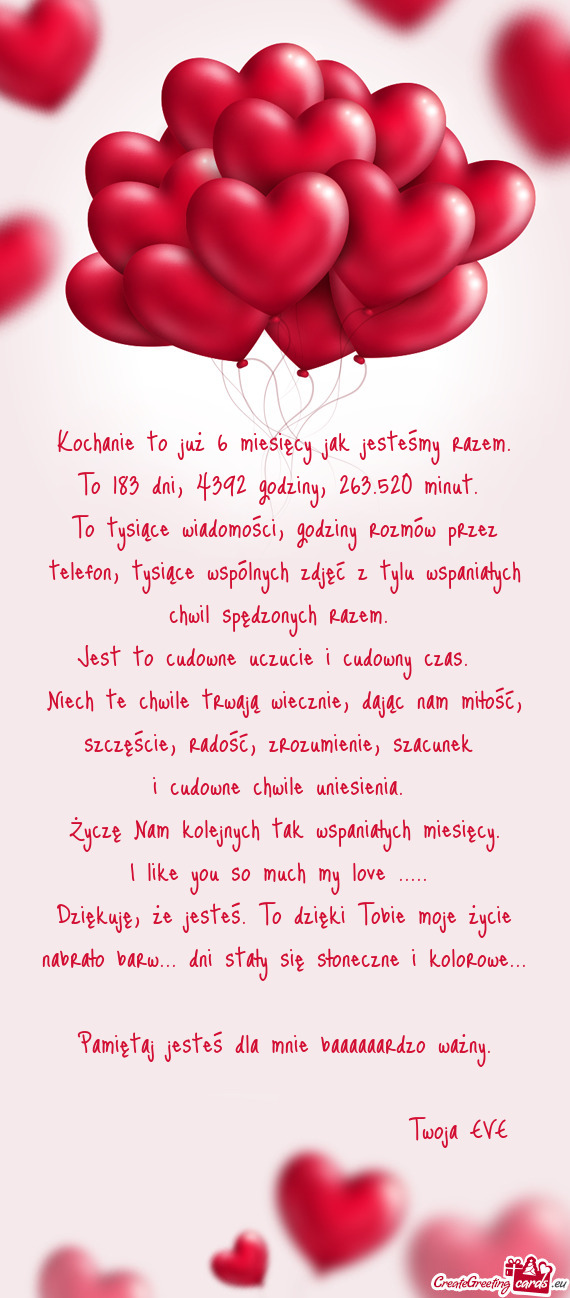 Kochanie to już 6 miesięcy jak jesteśmy razem.
To 183 dni, 4392 godziny, 263.520 minut.
To tysiące wiadomości, godziny rozmów przez
telefon, tysiące wspólnych zdjęć z tylu wspaniałych
chwil spędzonych razem.
Jest to cudowne uczucie i cudowny czas.
Niech te chwile trwają wiecznie, dając nam miłość,
szczęście, radość, zrozumienie, szacunek
i cudowne chwile uniesienia.
Życzę Nam kolejnych tak wspaniałych miesięcy.
I like you so much my love .....
Dziękuję, że jesteś. To dzięki Tobie moje życie
nabrało barw... dni stały się słoneczne i kolorowe...
Pamiętaj jesteś dla mnie baaaaaardzo ważny.
Twoja EVE
CreateGreetingcards.eu